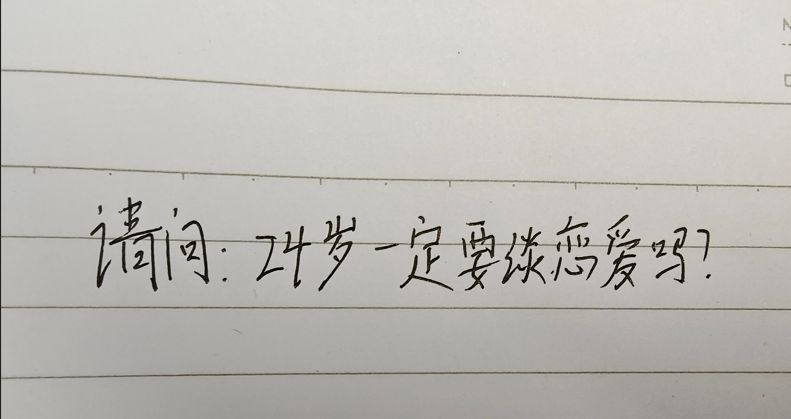 请问：24岁一定要谈恋爱吗？